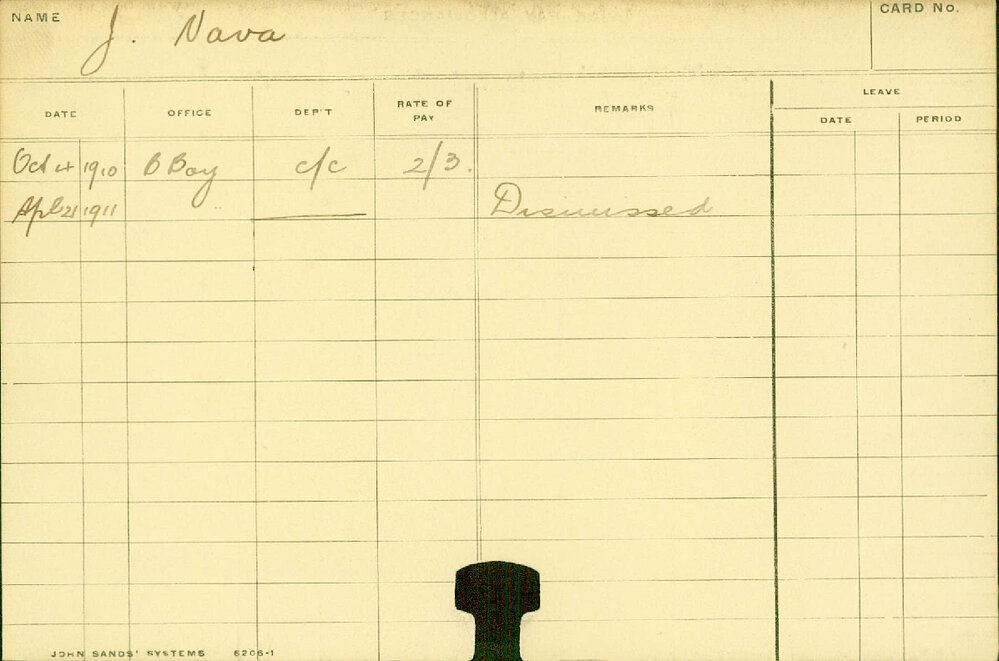 NAME J. Nava CARD No.
LEAVE
DATE OFFICE DEP'T RATE OF PAY REMARKS DATE PERIOD
Oct 4 1910 B Bay c/c 2/3.
Apl 21 1911 Dismissed
JOHN SANDS' SYSTEMS 6206-1